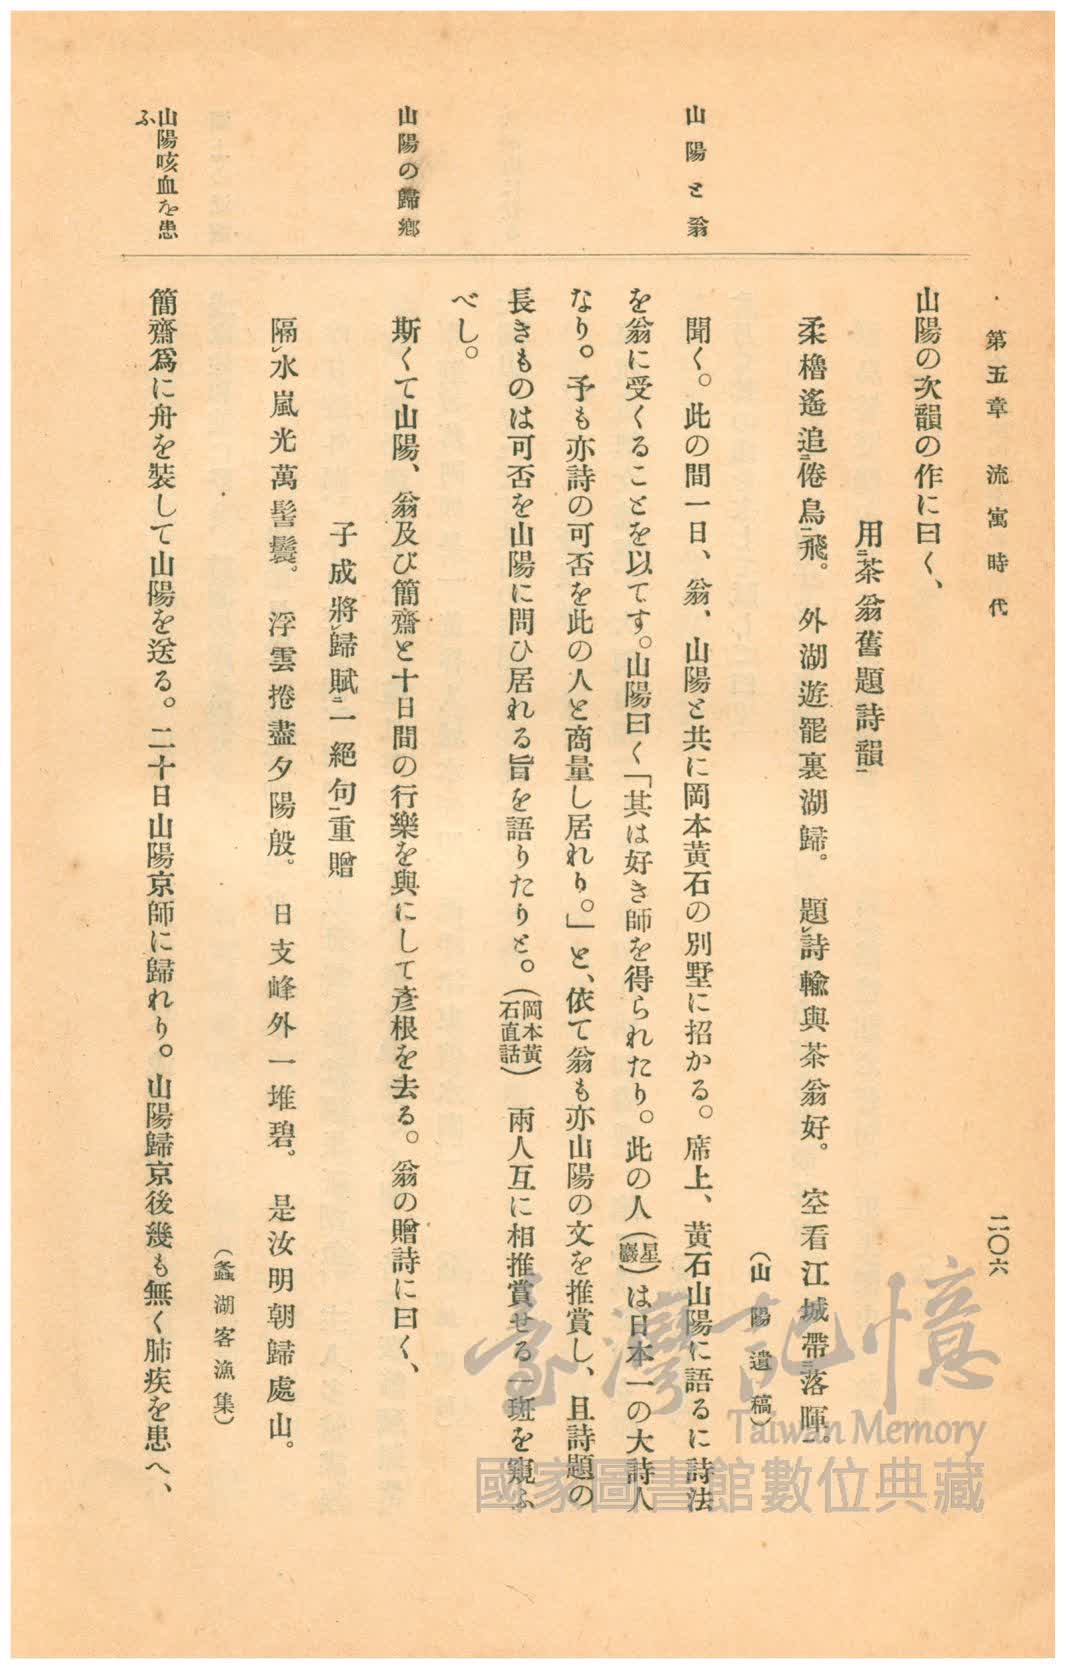 第五章　流寓時代
二〇六
山陽の次韻の作に曰く、
用二茶翁舊題詩韻一
柔櫓遙追二倦鳥一飛。　外湖遊罷裏湖歸。　題レ詩輸與茶翁好。　空看江城帶二落暉一。
（山陽遺稿）
山陽と翁
聞く。此の間一日、翁、山陽と共に岡本黄石の別墅に招かる。席上、黄石山陽に語るに詩法
を翁に受くることを以てす。山陽曰く「其は好き師を得られたり。此の人（星巖）は日本一の大詩人
なり。予も亦詩の可否を此の人と商量し居れり。」と、依て翁も亦山陽の文を推賞し、且詩題の
長きものは可否を山陽に問ひ居れる旨を語りたりと。（岡本黄石直話）　兩人互に相推賞せる一斑を窺ふ
べし。
山陽の歸鄕
斯くて山陽、翁及び簡齋と十日間の行樂を與にして彥根を去る。翁の贈詩に曰く、
子成將レ歸賦二一絕句一重贈
隔レ水嵐光萬髻鬟。　浮雲捲盡夕陽殷。　日支峰外一堆碧。　是汝明朝歸處山。
（蠡湖客漁集）
山陽咳血を患
ふ
簡齋爲に舟を裝して山陽を送る。二十日山陽京師に歸れり。山陽歸京後幾も無く肺疾を患へ、
臺灣記憶
Taiwan Memory
國家圖書館數位典藏